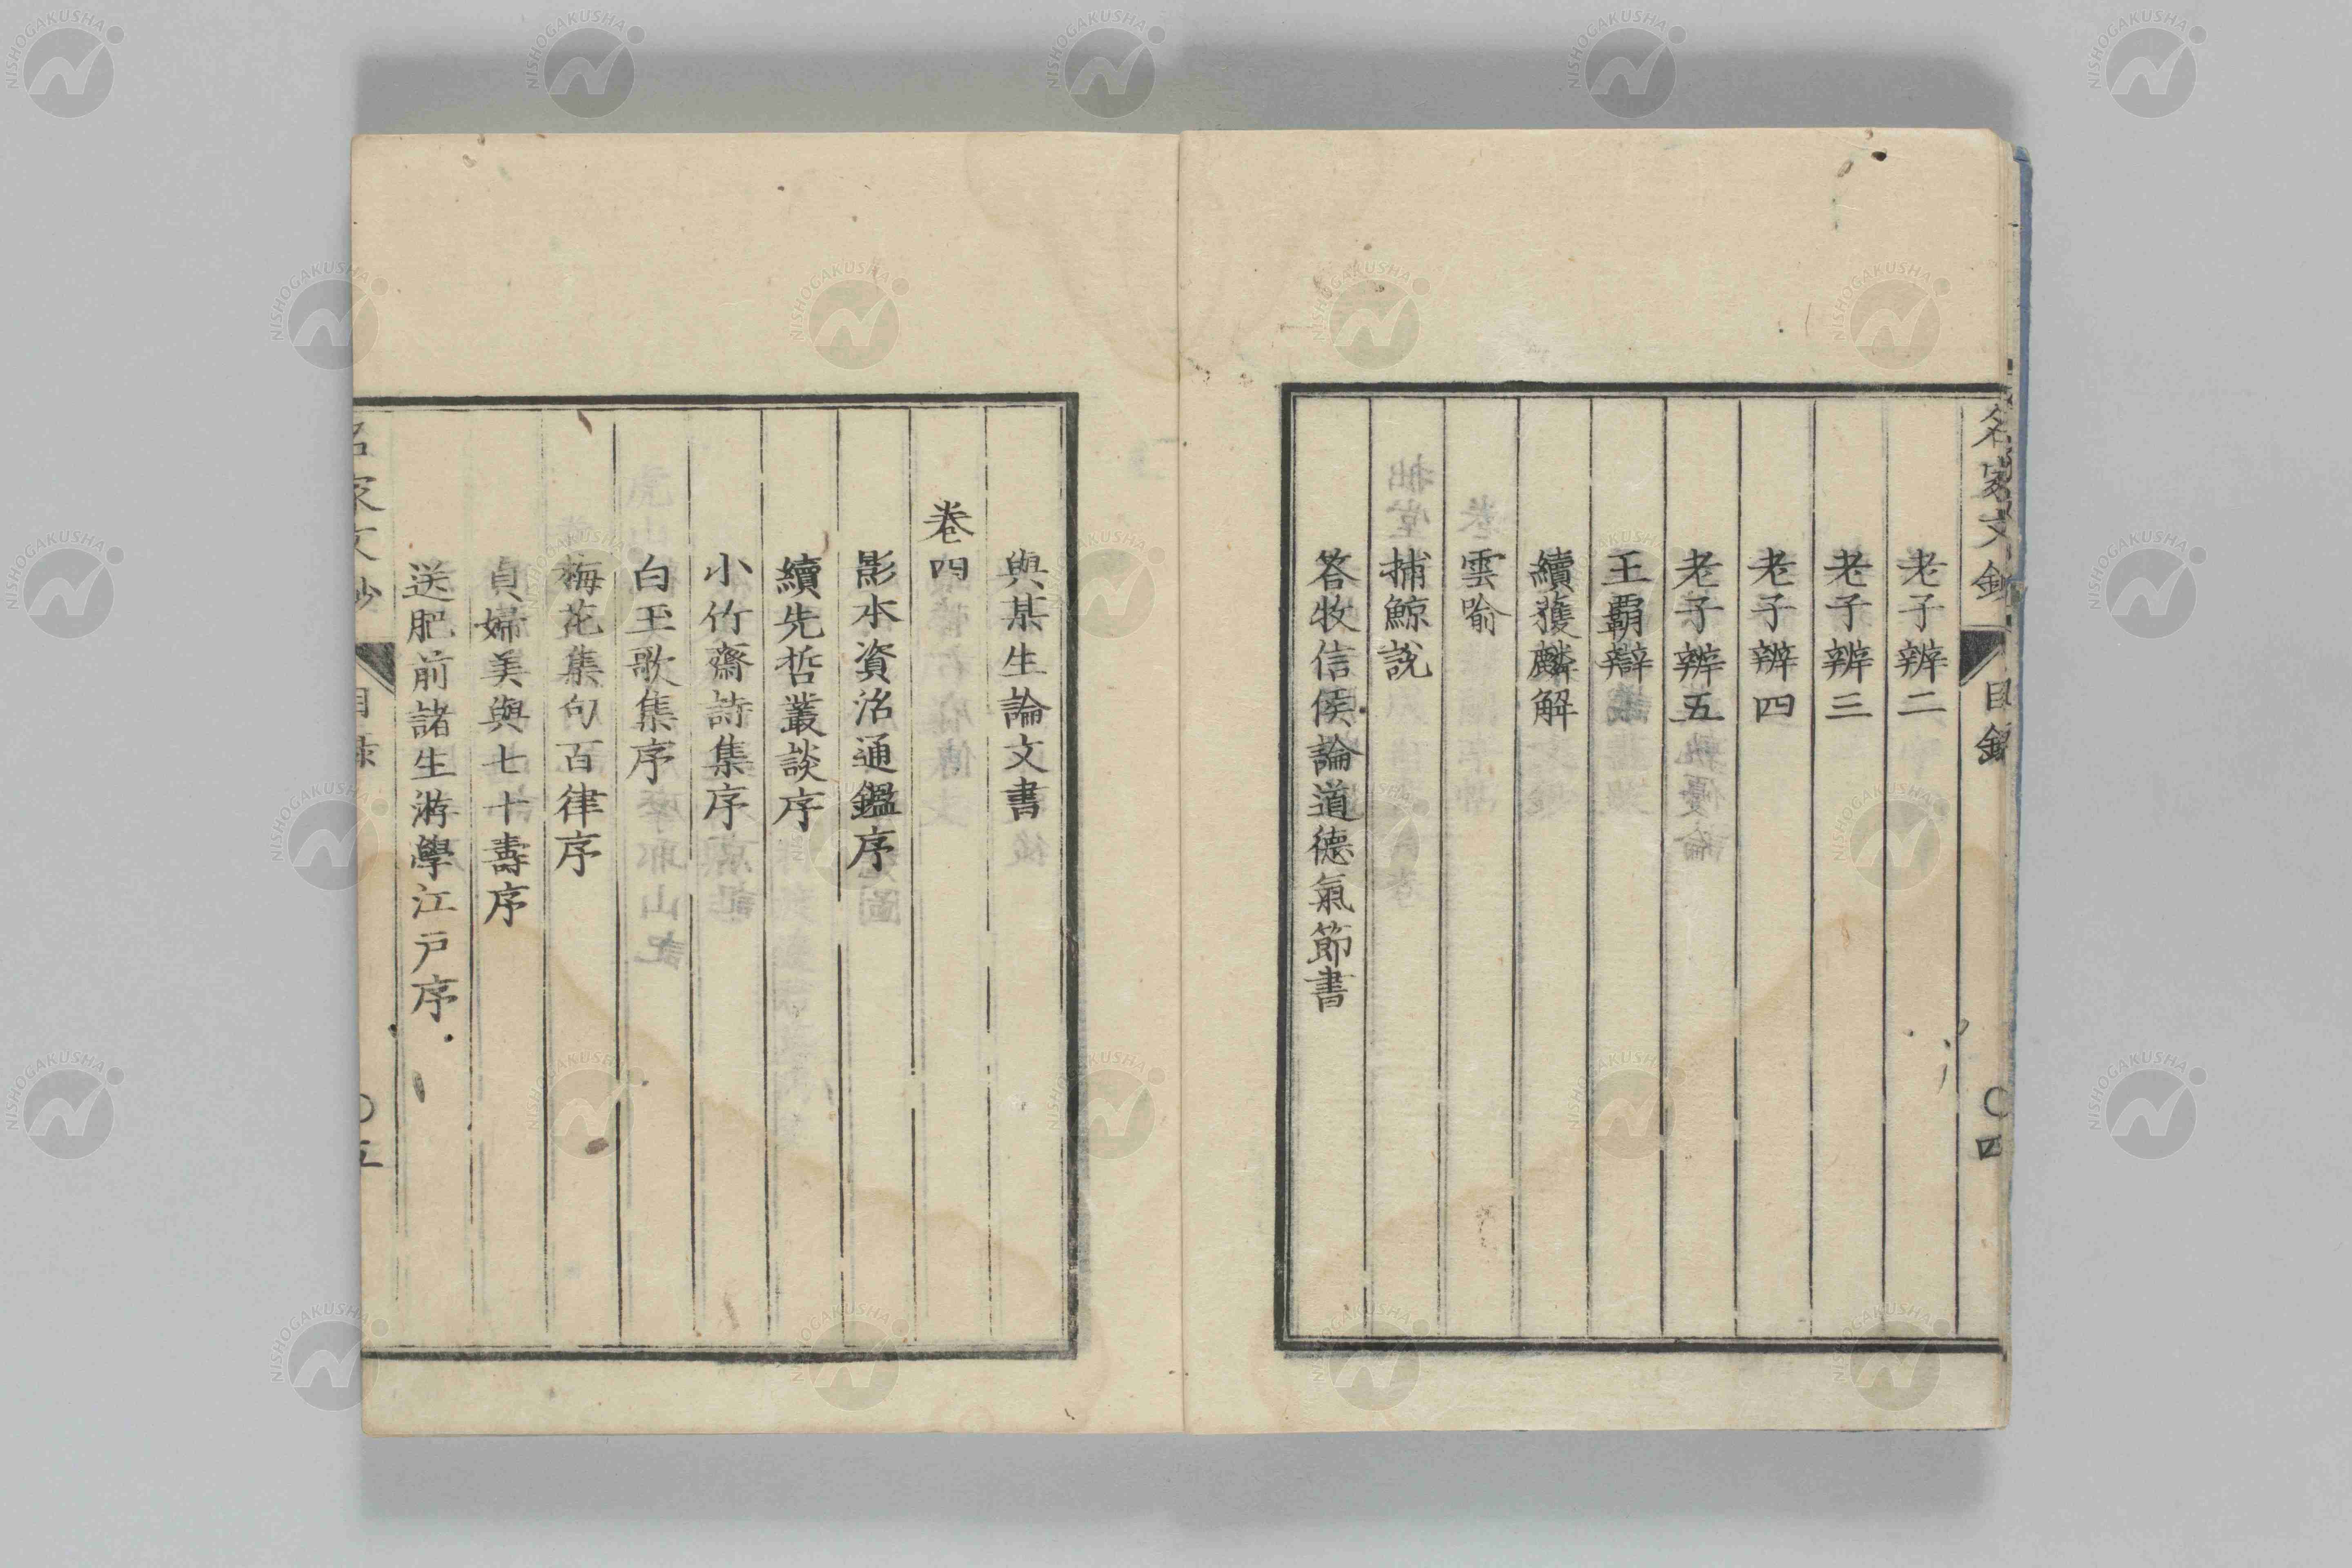 名家文鈔 目録 〇四
老子辨二
老子辨三
老子辨四
老子辨五
王覇辯
續獲麟解
雲喻
捕鯨説
答牧信侯論道德氣節書
與某生論文書
卷四
影本資治通鑑序
續先哲叢談序
小竹齋詩集序
白玉歌集序
梅花集句百律序
貞婦美與七十壽序
送肥前諸生游學江戸序
名家文鈔 目録 〇五
NISHOGAKUSHA